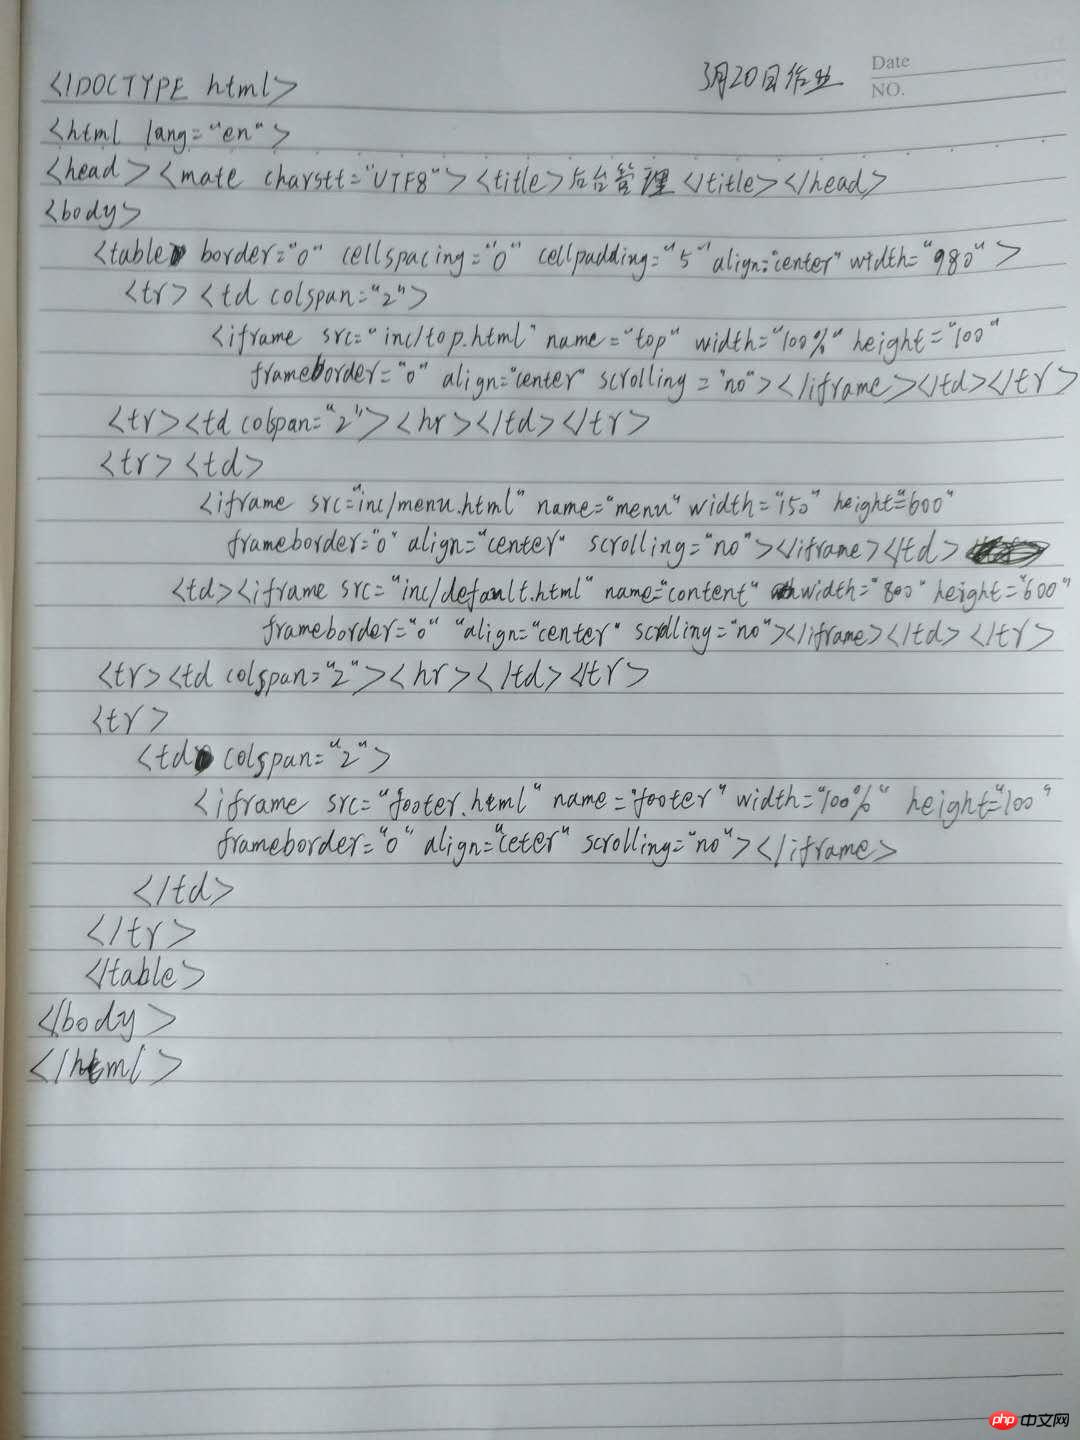 3月20日作业
Date
NO.
<!DOCTYPE html>
<html lang="en">
<head><mate charstt="UTF8"><title>后台管理</title></head>
<body>
<table border="0" cellspacing="0" cellpadding="5" align="center" width="980">
<tr><td colspan="2">
<iframe src="inc/top.html" name="top" width="100%" height="100"
frameborder="0" align="center" scrolling="no"></iframe></td></tr>
<tr><td colspan="2"><hr></td></tr>
<tr><td>
<iframe src="inc/menu.html" name="menu" width="150" height="600"
frameborder="0" align="center" scrolling="no"></iframe></td>
<td><iframe src="inc/default.html" name="content" width="800" height="600"
frameborder="0" "align="center" scrolling="no"></iframe></td></tr>
<tr><td colspan="2"><hr></td></tr>
<tr>
<td colspan="2">
<iframe src="footer.html" name="footer" width="100%" height="100"
frameborder="0" align="ceter" scrolling="no"></iframe>
</td>
</tr>
</table>
</body>
</html>
php 中文网